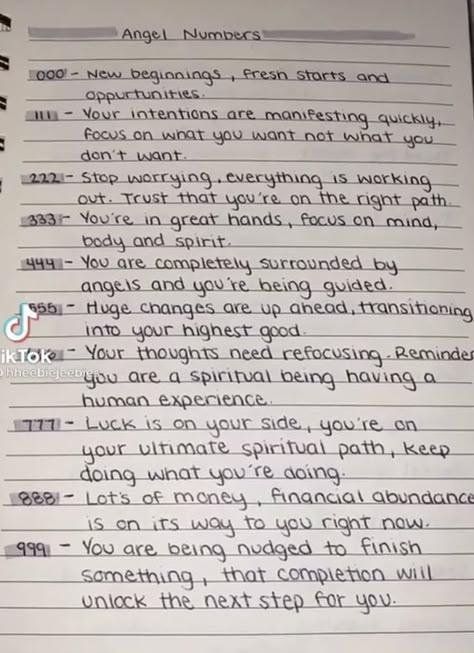 Angel Numbers
000 - New beginnings, fresh starts and
oppurtunities.
111 - Your intentions are manifesting quickly,
focus on what you want not what you
don't want.
222 - Stop worrying, everything is working
out. Trust that you're on the right path.
333 - You're in great hands, focus on mind,
body and spirit.
444 - You are completely surrounded by
angels and you're being guided.
555 - Huge changes are up ahead, transitioning
into your highest good.
TikTok
- Your thoughts need refocusing. Reminder
@hheebiejeebies
you are a spiritual being having a
human experience.
777 - Luck is on your side, you're on
your ultimate spiritual path, keep
doing what you're doing.
888 - Lot's of money, financial abundance
is on its way to you right now.
999 - You are being nudged to finish
something, that completion will
unlock the next step for you.